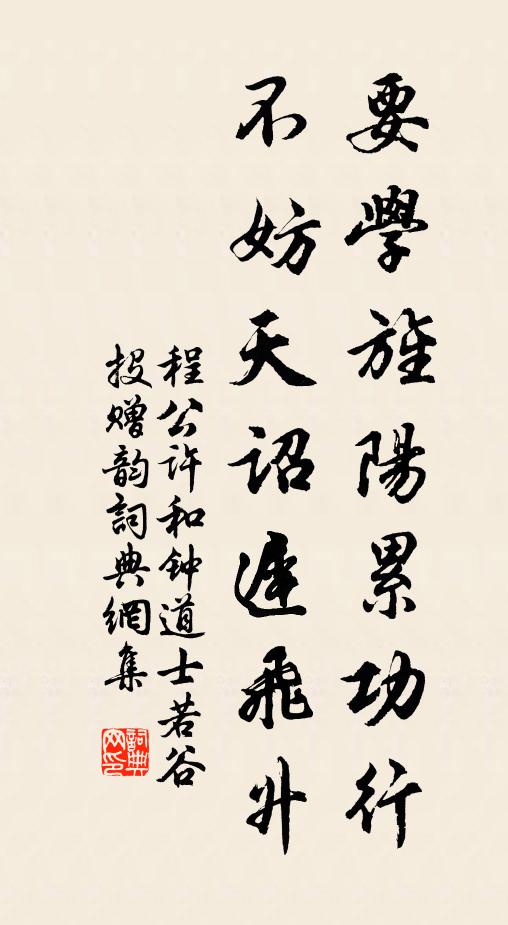 要學旌陽累功行
不妨天詔遲飛升
程公許和钟道士若谷
投赠韵詞典網集
詞典网印